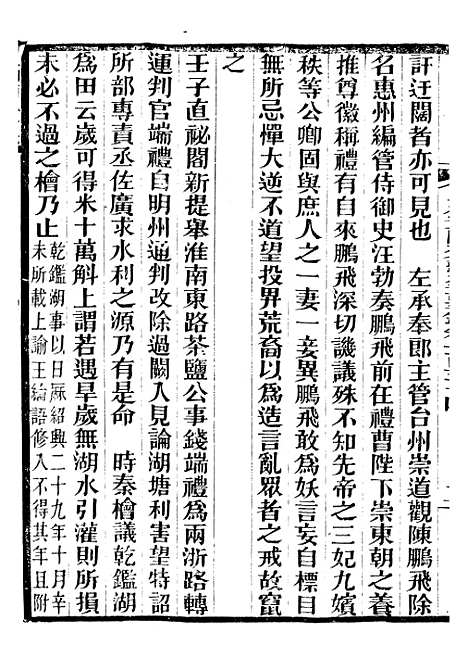 訐迂闊者亦可見也　左承奉郎主管台州崇道觀陳鵬飛除
名惠州編管侍御史汪勃奏鵬飛前在禮曹陛下崇東朝之養
推尊徽稱禮有自來鵬飛深切譏議殊不知先帝之三妃九嬪
秩等公卿固與庶人之一妻一妾異鵬飛敢為妖言妄自標目
無所忌憚大逆不道望投界荒裔以為造言亂眾者之戒故竄
之
壬子直祕閣新提舉淮南東路茶鹽公事錢端禮為兩浙路轉
運判官端禮自明州通判改除過闕入見論湖塘利害望特詔
所部專責丞佐廣求水利之源乃有是命　時秦檜議乾鑑湖
為田云歲可得米十萬斛上謂若遇旱歲無湖水引灌則所損
未必不過之檜乃止乾鑑湖事以日厤紹興二十九年十月辛
未所載上諭王綸語修入不得其年且附